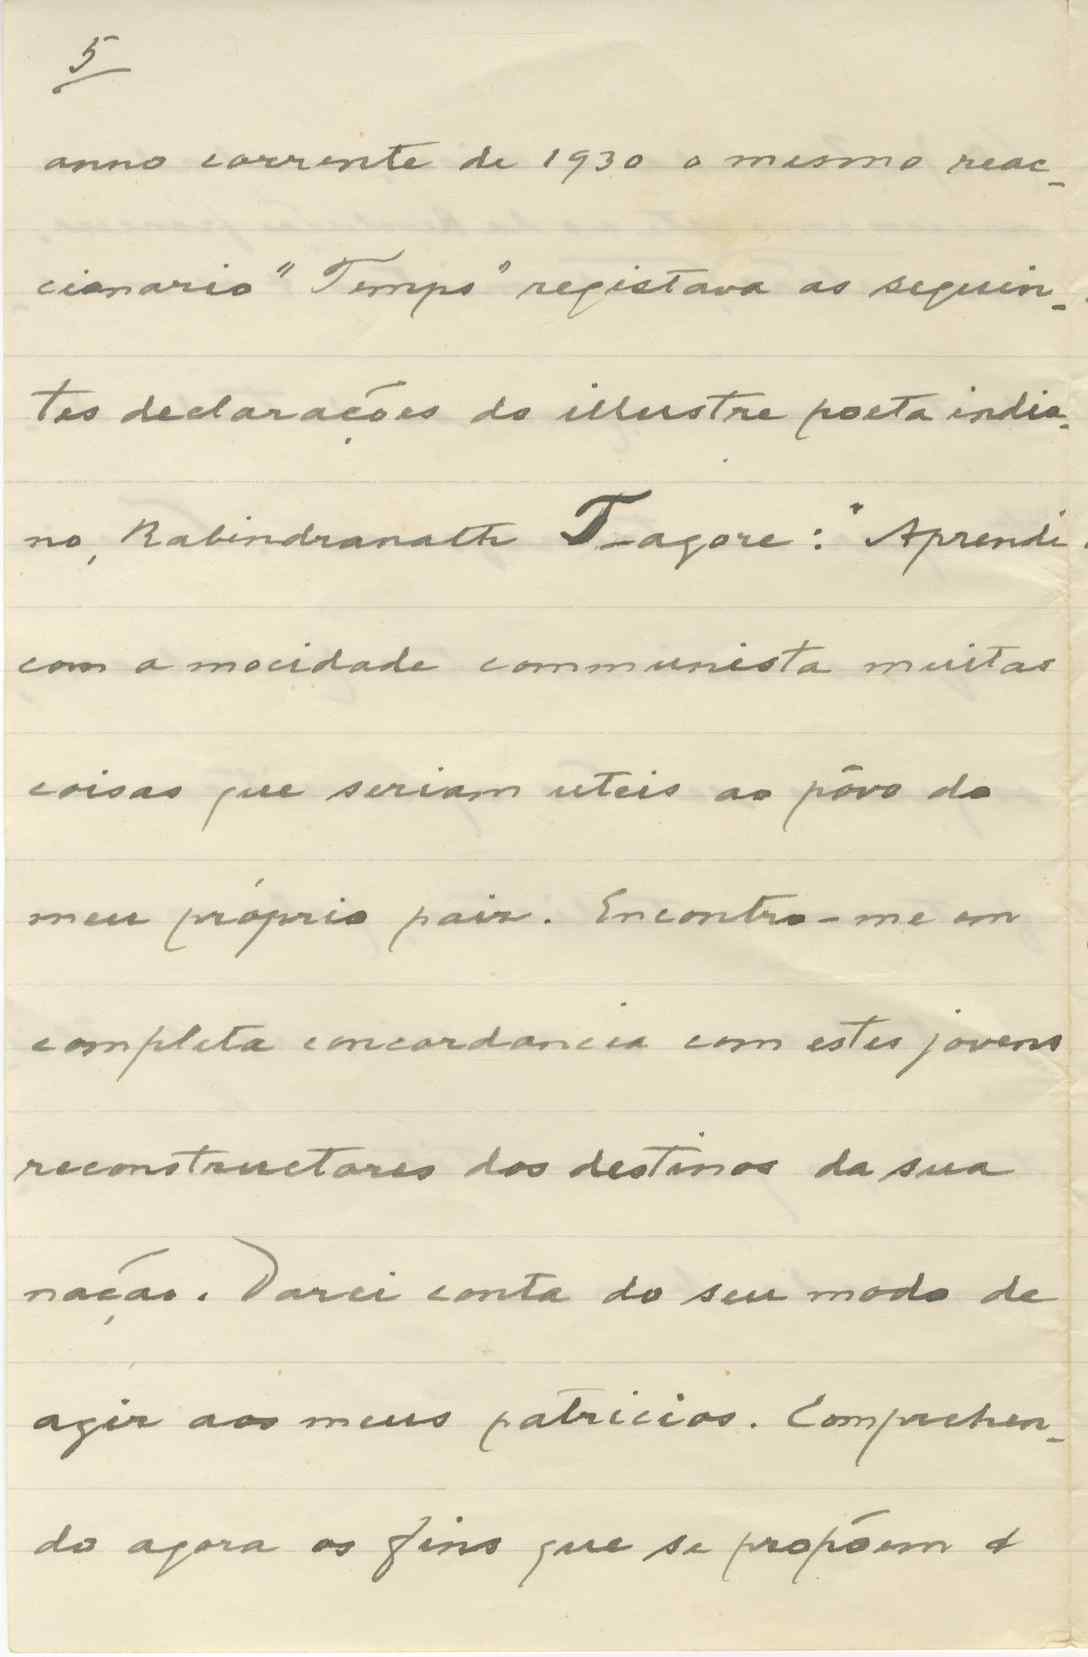 5
anno corrente de 1930 o mesmo reac-
cionario "Temps" registava as seguin-
tes declarações do illustre poeta india-
no, Rabindranath Tagore: "Aprendi
com a mocidade communista muitas
coisas que seriam uteis ao pôvo do
meu próprio paiz. Encontro-me em
completa concordancia com estes jovens
reconstructores dos destinos da sua
nação. Darei conta do seu modo de
agir aos meus patricios. Comprehen-
do agora os fins que se propõem e